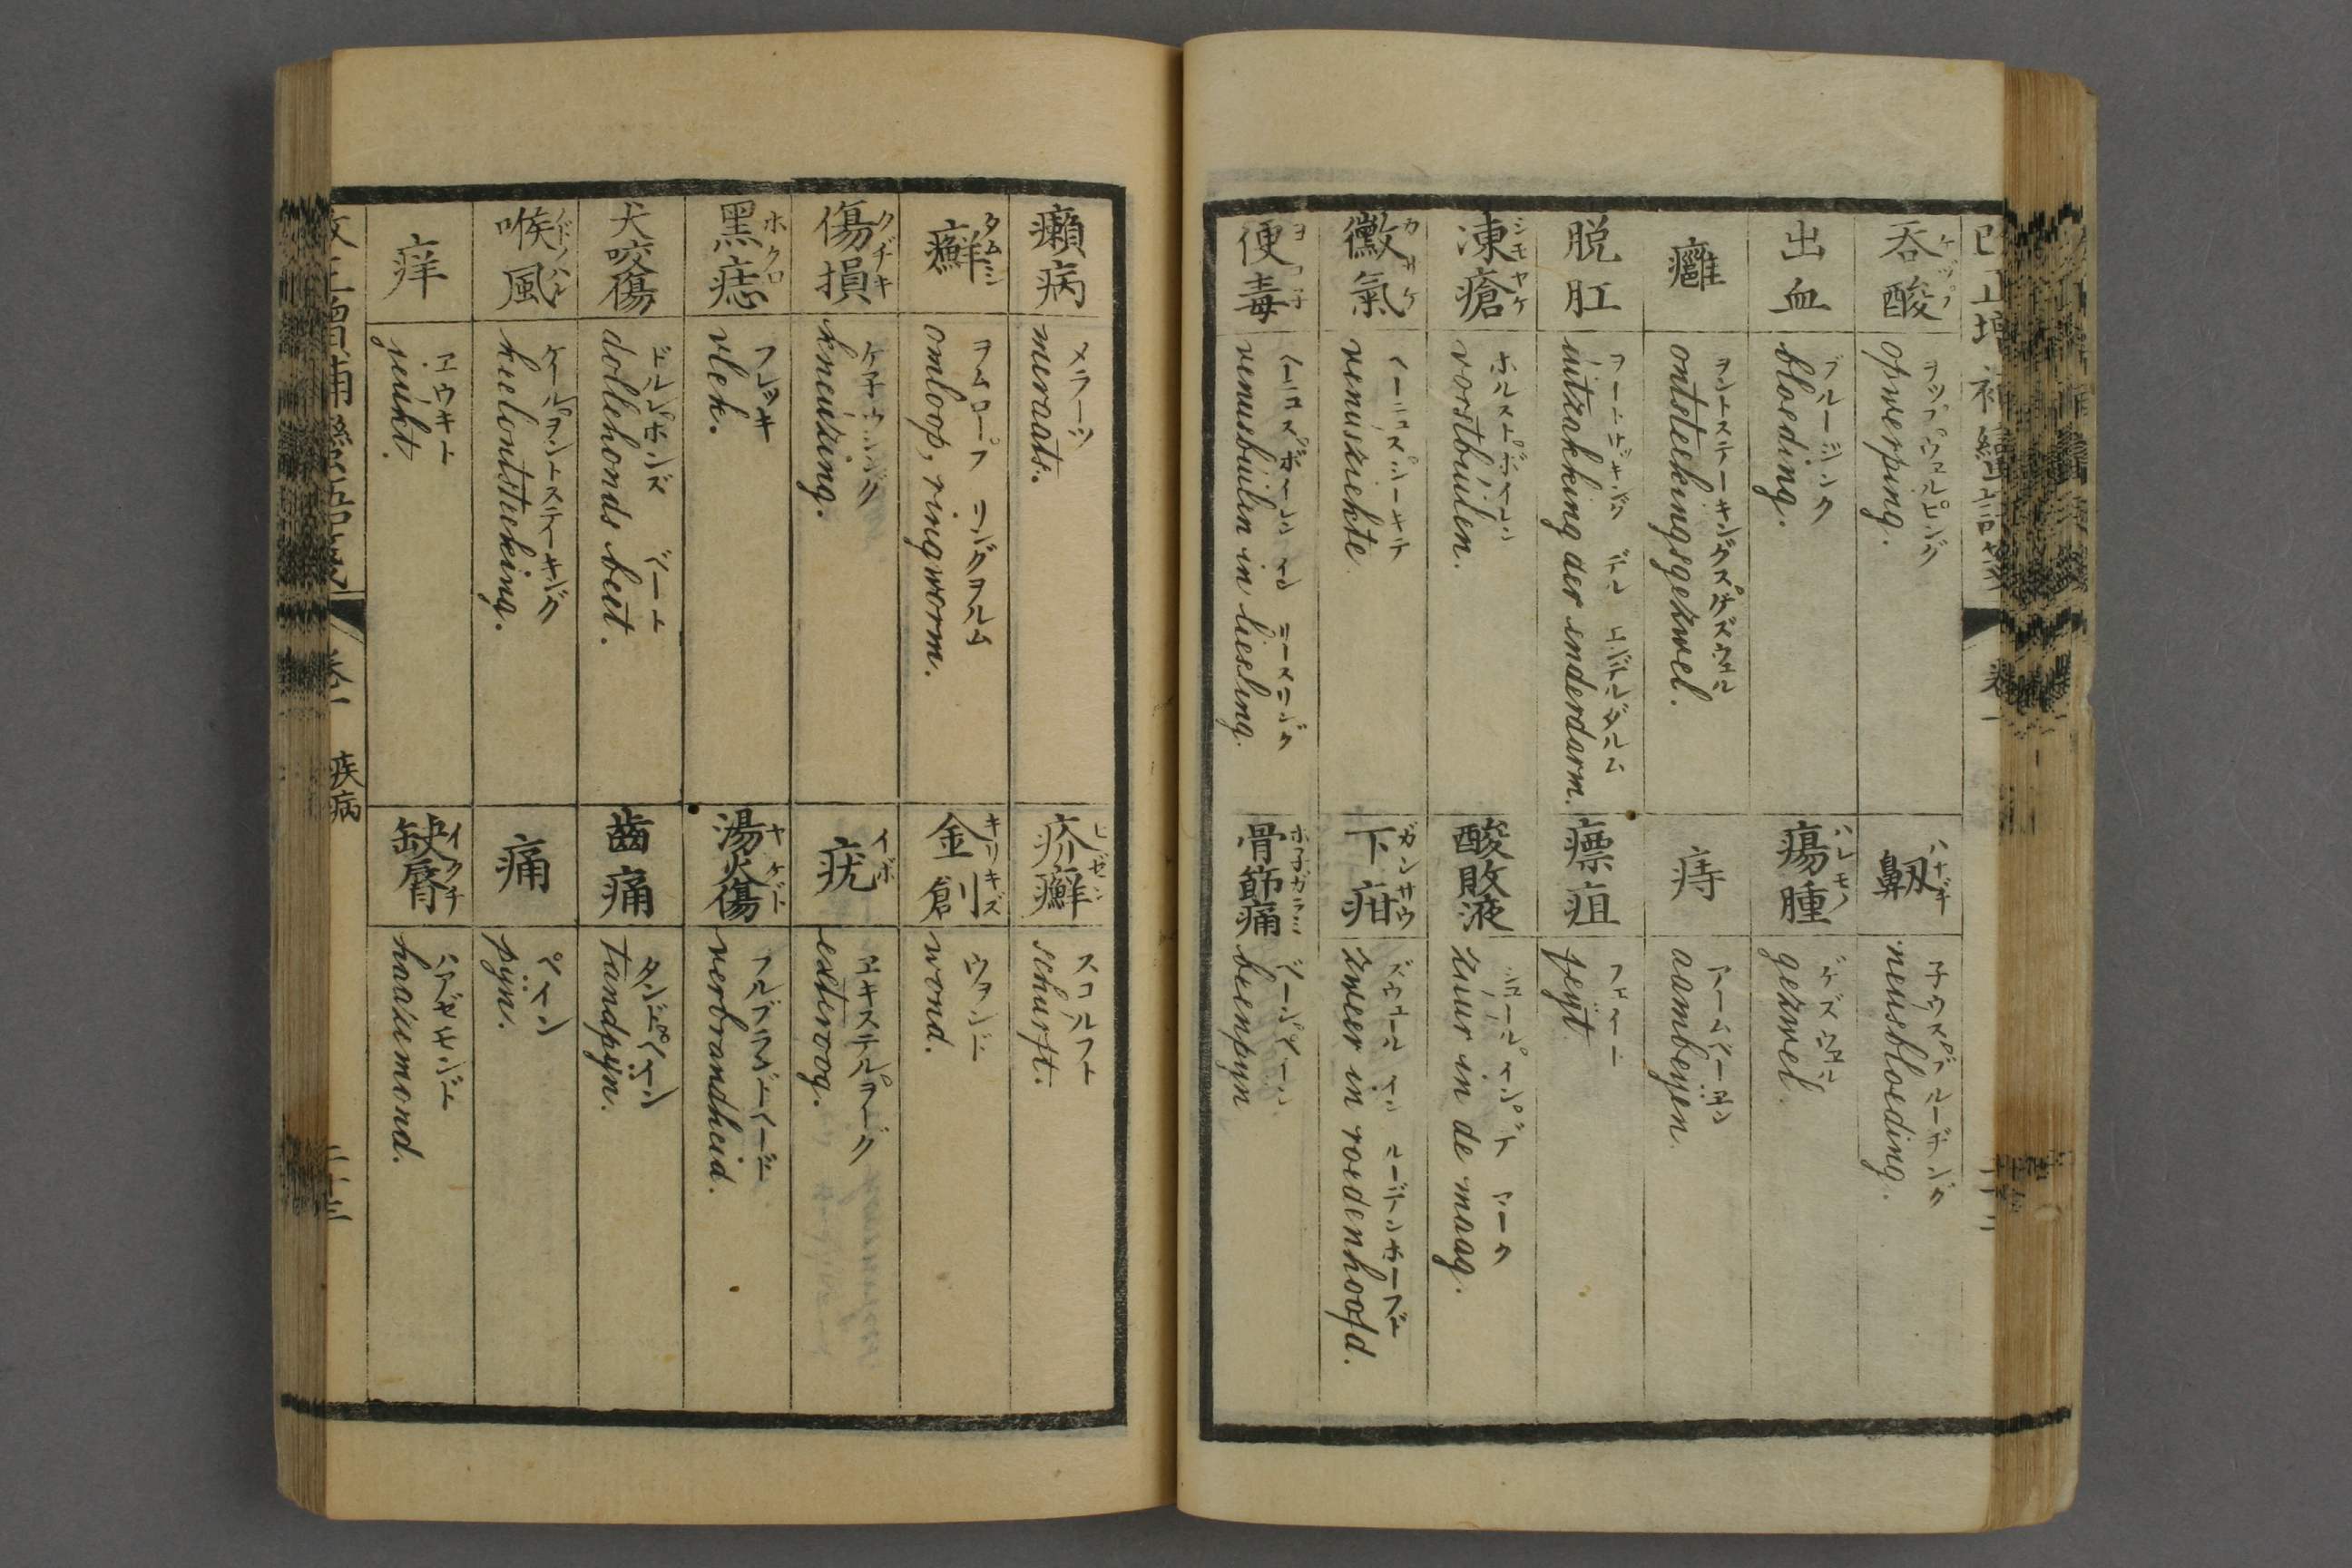 呑酸
opwerping.
ヲップウェルピング
鼽
ハナヂ
neusbloeding.
子ウスブルーヂング
出血
bloeding.
ブルージンク
瘍腫
ハレモノ
gezwel.
ゲズウェル
癰
ontsteekingsgezwel.
ヲントステーキングスゲズウェル
痔
aambeyen.
アームベーエン
脱肛
uitzakking der enderdarm.
デル エンデルダルム
瘭疽
feyt
フェイト
凍瘡
シモヤケ
vorstbuilen.
ホルストボイレン
酸敗液
zuur in de maag.
ジュール イン デ マーク
黴氣
カサケ
venusziekte
ヘーニュスシーキテ
下疳
ガンサウ
zweer in roedenhoofd.
ズウェール イン ルーデンホーフド
便毒
ヨコ子
venusbuilen in liesling.
ヘーニュスボイレン イン リースリング
骨節痛
ホ子ガラミ
beenpyn
ベーンペーン
癩病
meraats.
メラーツ
疥癬
ヒゼン
schurft.
スコルフト
癬
タムシ
omloop, ringworm.
ヲムロープ リングヲルム
金創
キリキズ
wond.
ウヲンド
傷損
クヂキ
kneuzing.
ケ子ウジング
疣
イボ
exteroog.
エキステルヲーグ
黑痣
ホクロ
vlek.
フレッキ
湯火傷
ヤケド
verbrandheid.
フルブランドヘード
犬咬傷
dollehonds beet.
ドルレホンヅ ベート
齒痛
tandpÿn.
タンドペイン
喉風
ノドハレ
keelontsteeking.
ケールヲントステーキング
痛
pÿn.
ペイン
痒
jeukt.
エウキト
缺脣
イクチ
haazemond.
ハアゼモンド
卷一 疾病
二十三